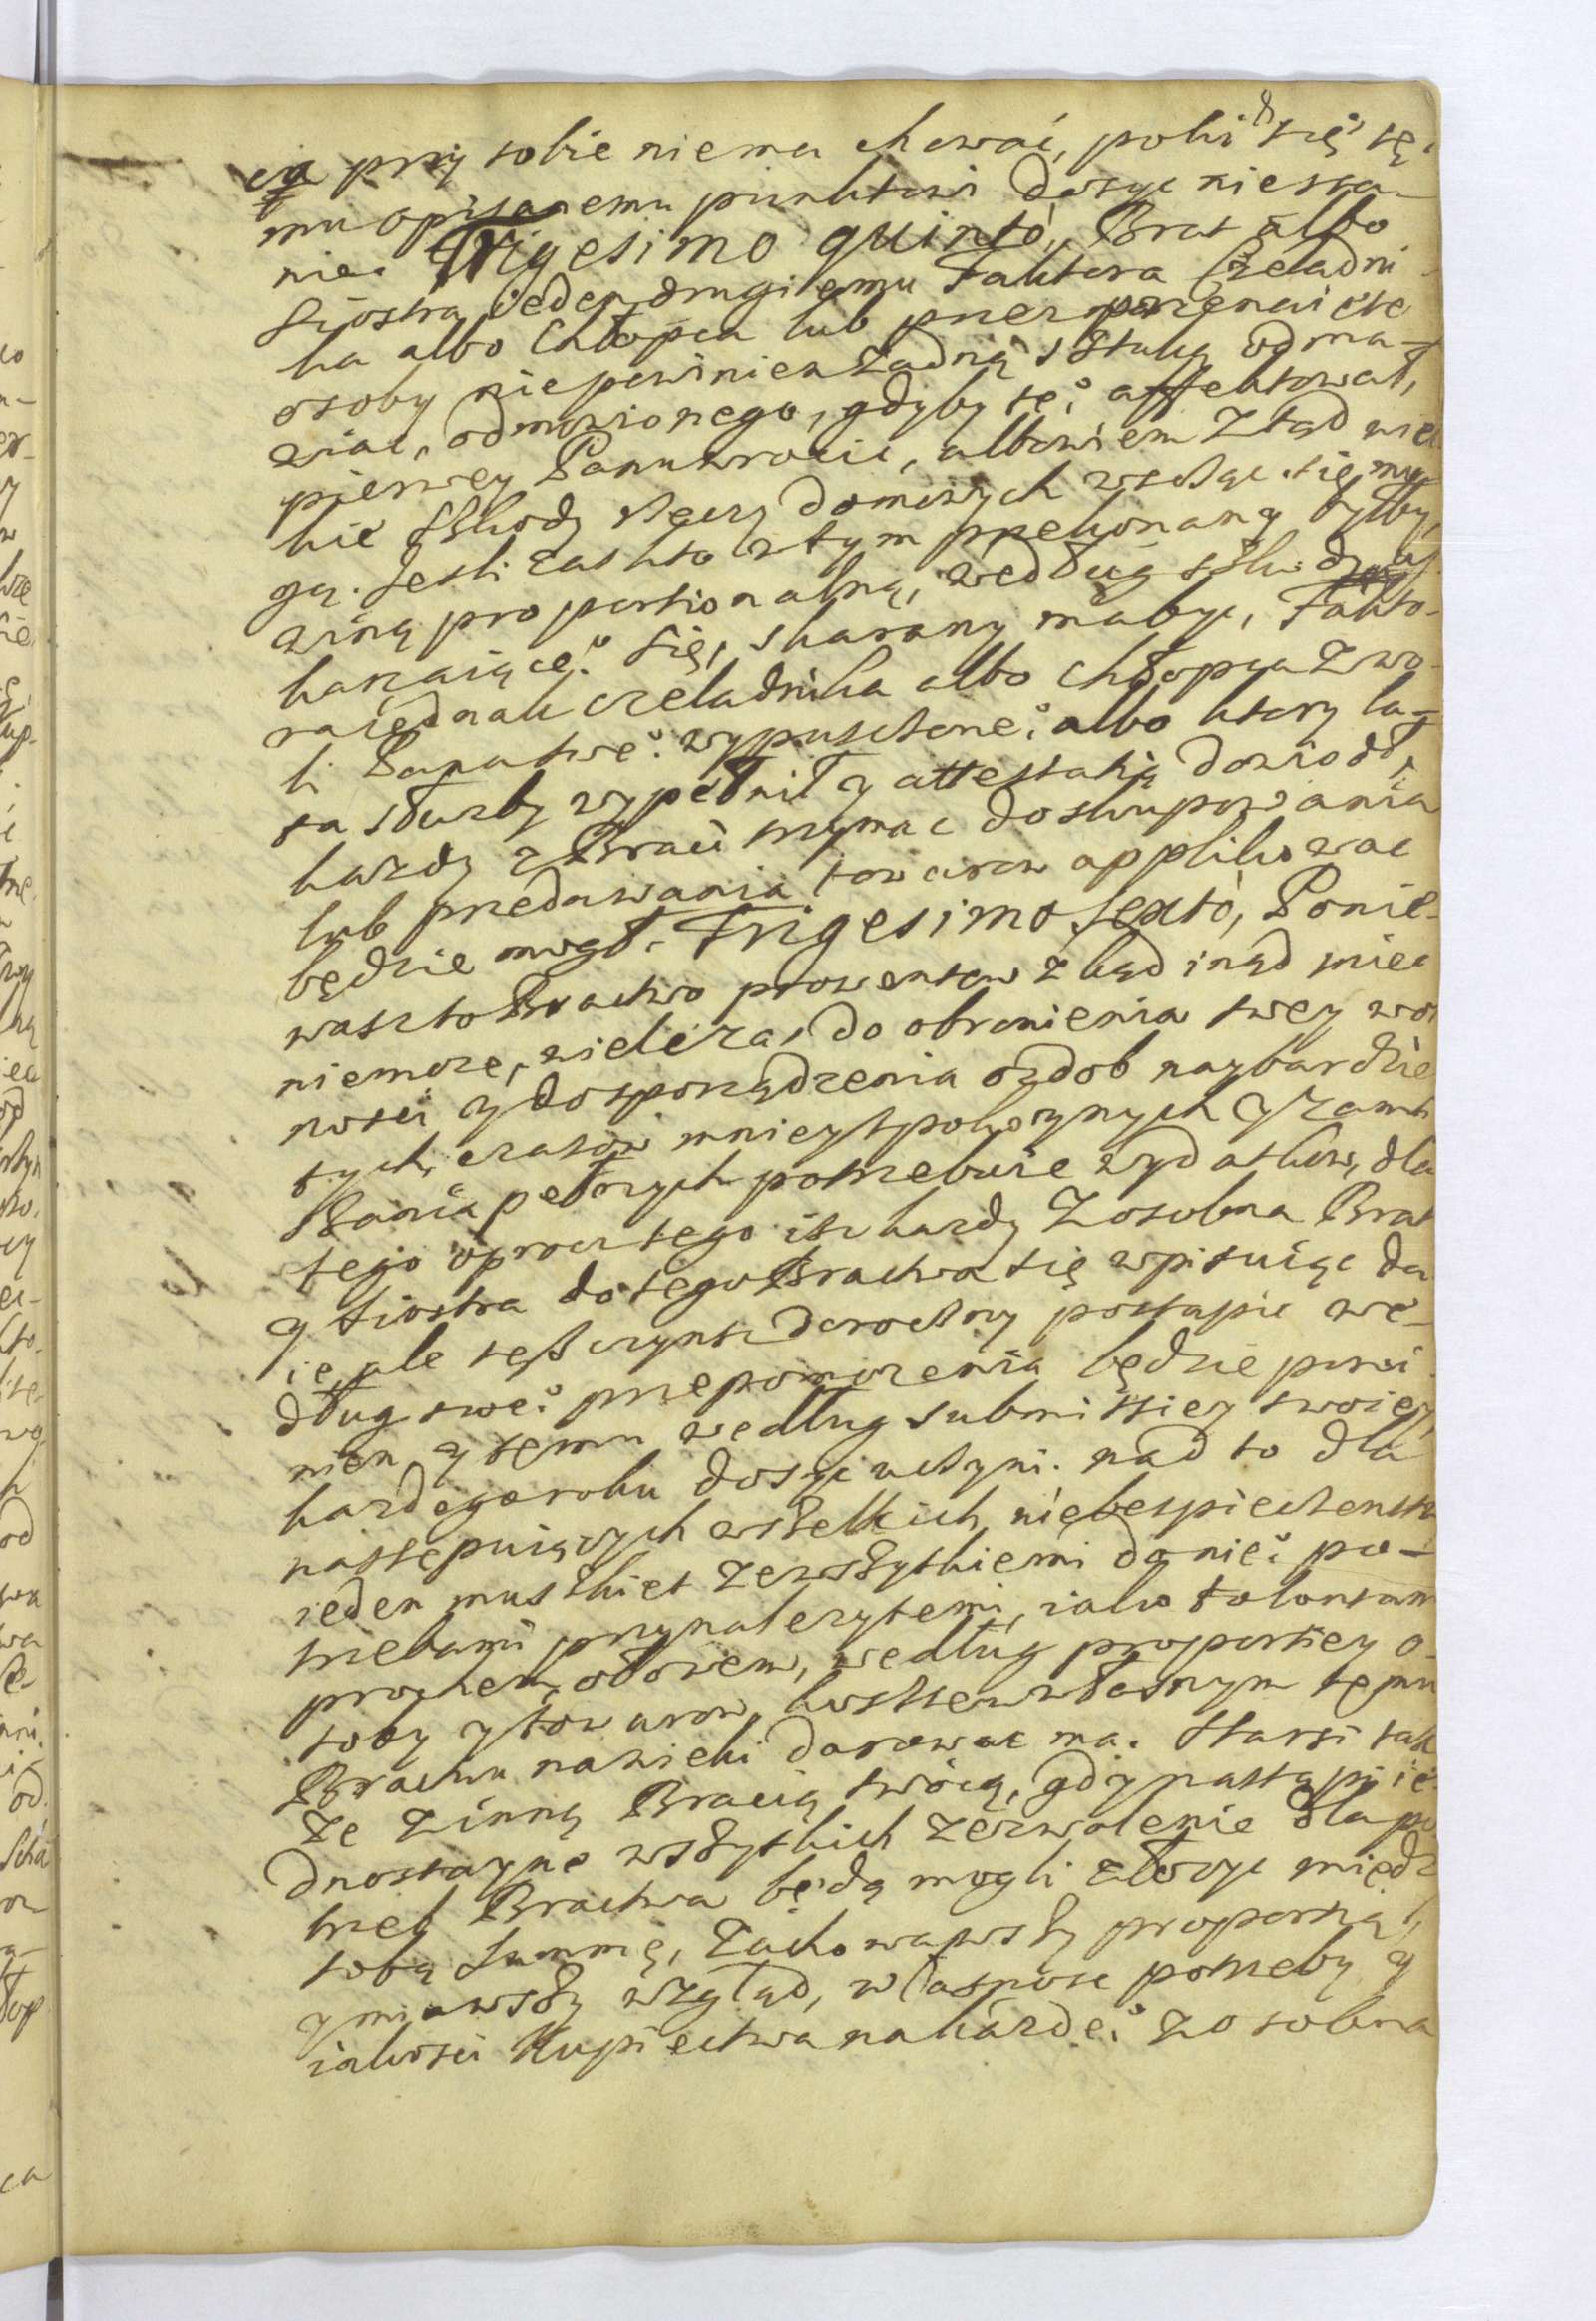 cia przy sobie niema chować, poki się tę:
mu opisanemu punktowi dosyc niesta-
nie: Trigesimo quintò, Brat albo
Siostra, ieden drugiemu Faktora Czeladni-
ka albo Chłopca lub przez
osoby niepowinien żadną sstuką odma-
wiac, odmowionego, gdyby tę: affektował,
pierwey Panu wrocic, albowiem ztąd wiel
kie sskody rzeczy domowych wscząc się mo
gą. Jesli zas kto w tym przekonany byłby,
winą proportionalną, według sskody
kazaiące: się, skarany ma byc, Fakto-
ra iednak czeladnika albo chłopca z wo-
li Pana swe: wypusczone: albo ktory la-
ta służby wypełnił y attestatią dowiodł,
kazdy z Braci trzymac do skupowania
lub przedawania towarow applikowac
będzie mogł. Trigesimo sextò, Ponie-
wasz to Bractwo prowentow zkąd inąd miec
niemoze, wiele zas do obronienia swey wol
nosci y do sporządzenia ozdob naybardzie
tych czasow mniey spokoynych y zamie
ssania pełnych potrzebuie wydatkow, dla
tego oprocz tego isz kazdy zosobna Brat
y Siostra do tego Bractwa się wpisuiąc da
ie, ale tesz czynsz doroczny postąpic we-
dług swe: przepomozenia będzie powi
nien y temu według submissiey swoiey
kazdego roku dosyc uczyni. nad to dla
nastepuiących wsselkich niebespieczenstw
ieden muszkiet ze wssytkiemi do nie: po-
trzebami przynalezytemi, iako
prochem, ołowem, według proportiey o-
soby y towarow, kosztem własnym temu
Bractwu nawieki darowac ma. Starsi tak
ze z inną Bracią swoią, gdy nastąpi ie
dnostayne wssytkich zezwolenie dla po
trzeb Bractwa będą mogli złozyc miedz
sobą Summę, zachowawssy proportią,
y miawssy wzgląd, własnose potrzeby y
iakosci Kupiectwa na kazde: zosobna